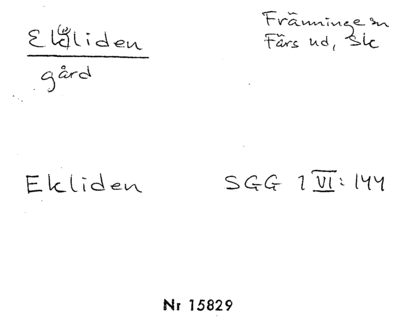 Ek(e)liden
gård
Fränninge sn
Färs hd, Sk
Ekliden
SGG 1 VI: 144
Nr 15829